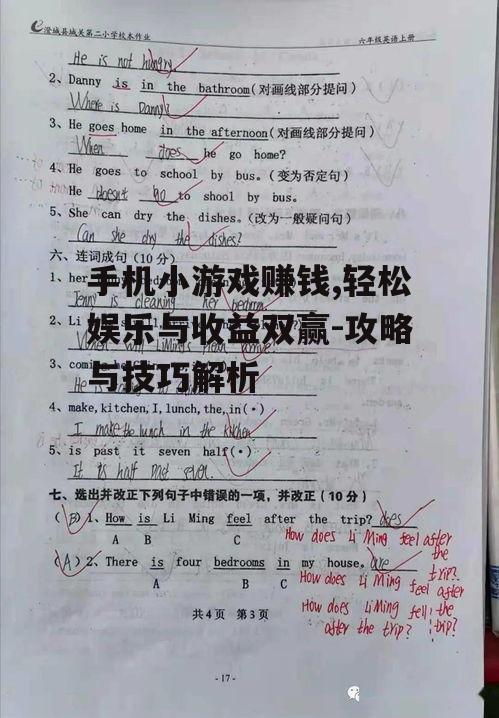 澄城县城关第二小学校本作业
六年级英语上册
He is not hungry
2、Danny is in the bathroom(对画线部分提问)
Where is Danny?
3、He goes home in the afternoon(对画线部分提问)
When does he go home?
4、He goes to school by bus.(变为否定句)
He doesn't go to shool by bus.
5、She can dry the dishes.(改为一般疑问句)
Can she dry the dishes?
六、连词成句(10分)
手机小游戏赚钱,轻松
娱乐与收益双赢-攻略
与技巧解析
1、her
Jenny is cleaning her bedroom.
2、Li
3、com
4、make,kitchen,I,lunch,the,in(•)
I make the lunch in the kitchen
5、is past it seven half(•)
It is half past seven.
七、选出并改正下列句子中错误的一项,并改正(10分)
(B)1、How is Li Ming feel after the trip? does
A B C
How does Li Ming feel after the trip?
(A)2、There is four bedrooms in my house. are
A B C
How does Li Ming feel after the trip?
How does Li Ming fell after the trip?
共4页 第3页
-17-